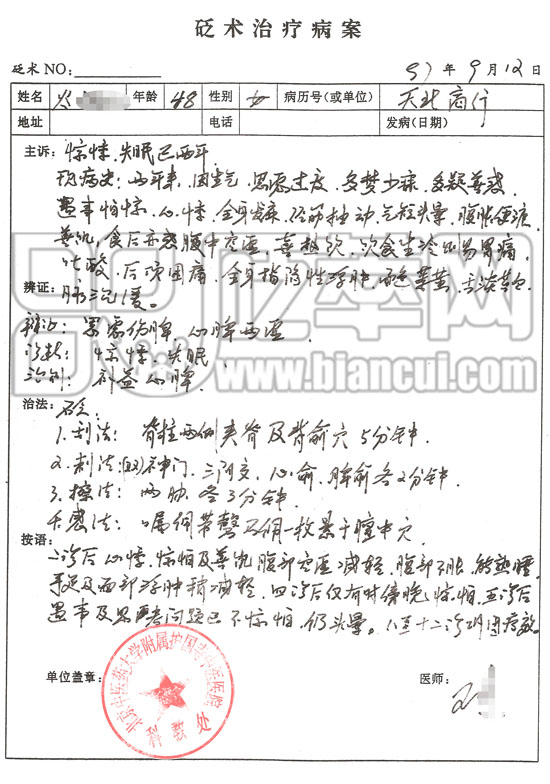 砭术治疗病案
砭术 NO: 97 年 9 月 12 日
姓名 年龄 48 性别 女 病历号(或单位) 天北商行
地址 电话 发病(日期)
主诉: 惊悸、失眠已两年
现病史: 两年来, 因生气、思虑过度、多梦少寐、多疑善惑
遇事怕惊、心悸、全身发麻、筋抽动、气短头晕、腹胀便溏
善饥、食后亦感腹中空虚、喜热饮、饮食生冷 易胃痛
吐酸、后项困痛、全身指陷性浮肿、面色萎黄、舌淡苔白
辨证: 脉沉缓。
辨证: 思虑伤脾、心脾两虚
诊断: 惊悸、失眠
治则: 补益心脾
治法: 砭:
1. 刮法: 脊柱两侧夹脊及背俞穴 5分钟.
2. 刺法: (双) 神门、三阴交、心俞、脾俞各2分钟.
3. 擦法: 两胁各3分钟.
嘱佩带 砭佩一枚悬于膻中穴
按语: 一诊后心悸、惊怕及善饥腹部空虚减轻, 腹部不胀, 能熟睡
手足及面部浮肿稍减轻, 四诊后仅有时傍晚惊怕, 五诊后
遇事及思考问题已不惊怕, 仍头晕。八至十二诊巩固疗效.
单位盖章: 医师:
北京中医药大学附属护国寺中医医院
科教处
砭萃网
www.biancui.com